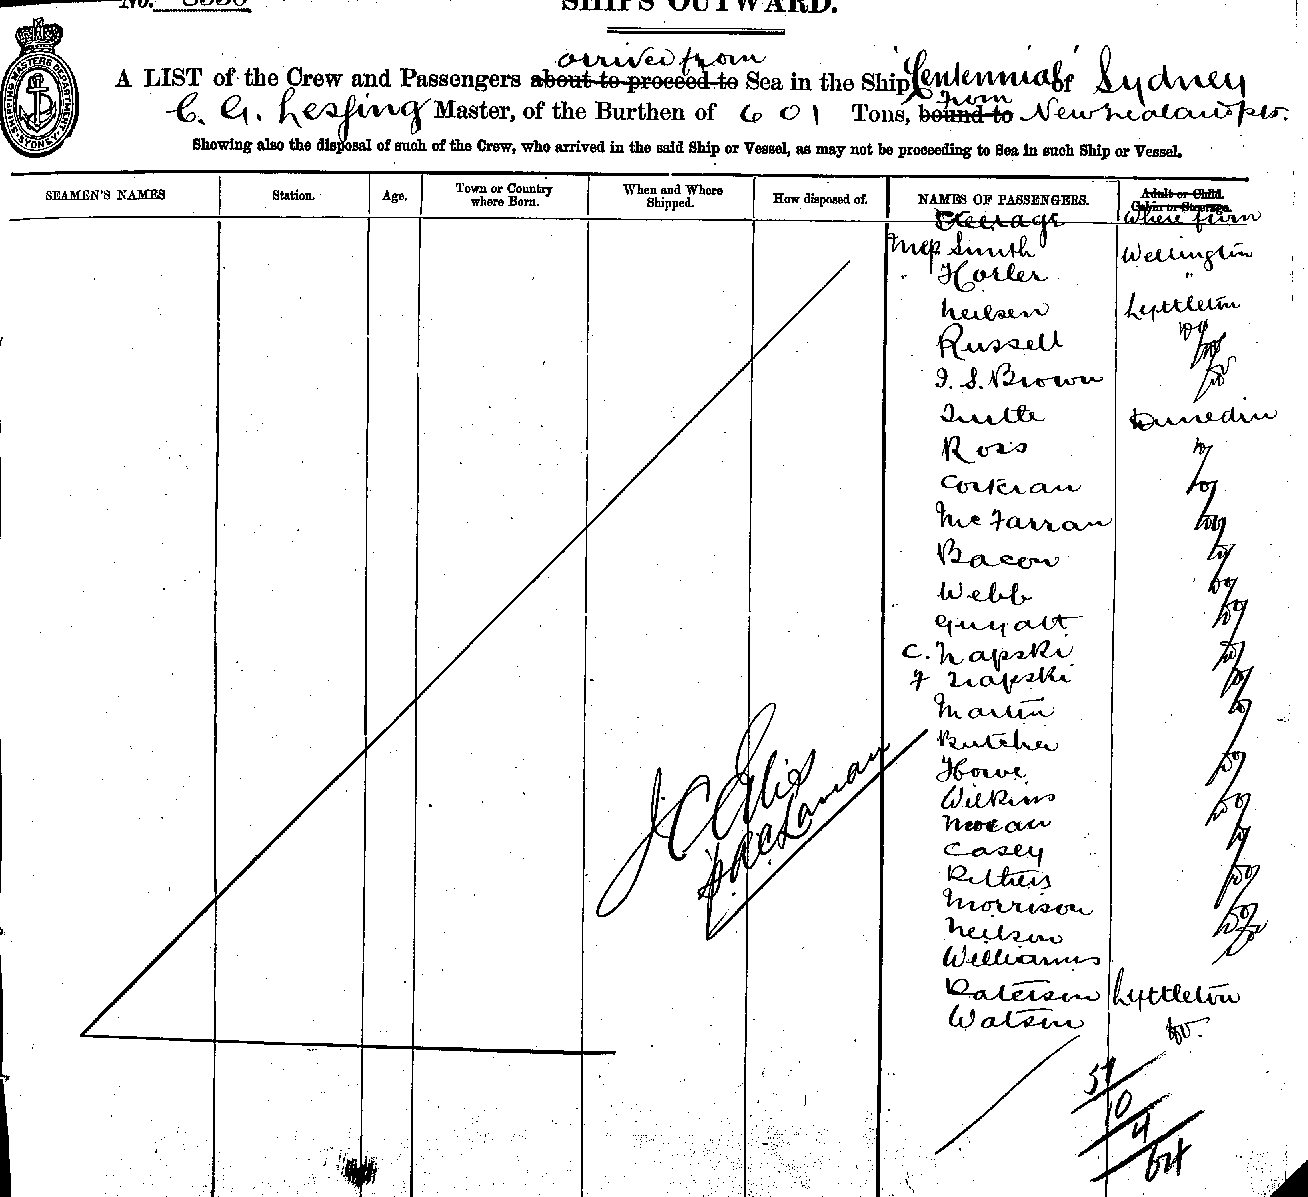 No. 8556
SHIPS OUTWARD.
arrived from
A LIST of the Crew and Passengers about to proceed to Sea in the Ship Centennial of Sydney
C. G. Lessing Master, of the Burthen of 601 Tons, bound to from New Zealand pts.
Showing also the disposal of such of the Crew, who arrived in the said Ship or Vessel, as may not be proceeding to Sea in such Ship or Vessel.
SHIPPING MASTERS DEPARTMENT SYDNEY
SEAMEN'S NAMES Station. Age. Town or Country where Born. When and Where Shipped. How disposed of. NAMES OF PASSENGERS. Adult or Child. Cabin or Steerage.
Steerage Where from
Smith Wellington
Horler "
Neilsen Lyttleton
Russell do
I. S. Brown do
Tutte Dunedin
Ross do
Corkran do
McFarran do
Bacon do
Webb do
Guyatt do
C. Napski do
F Napski do
Martin do
Butcher
Howe do
Wilkins do
Moran
Casey do
Morrison do
Neilson do
Williams
Paterson Lyttleton
Watson do.
J C Ellis
0
4
64